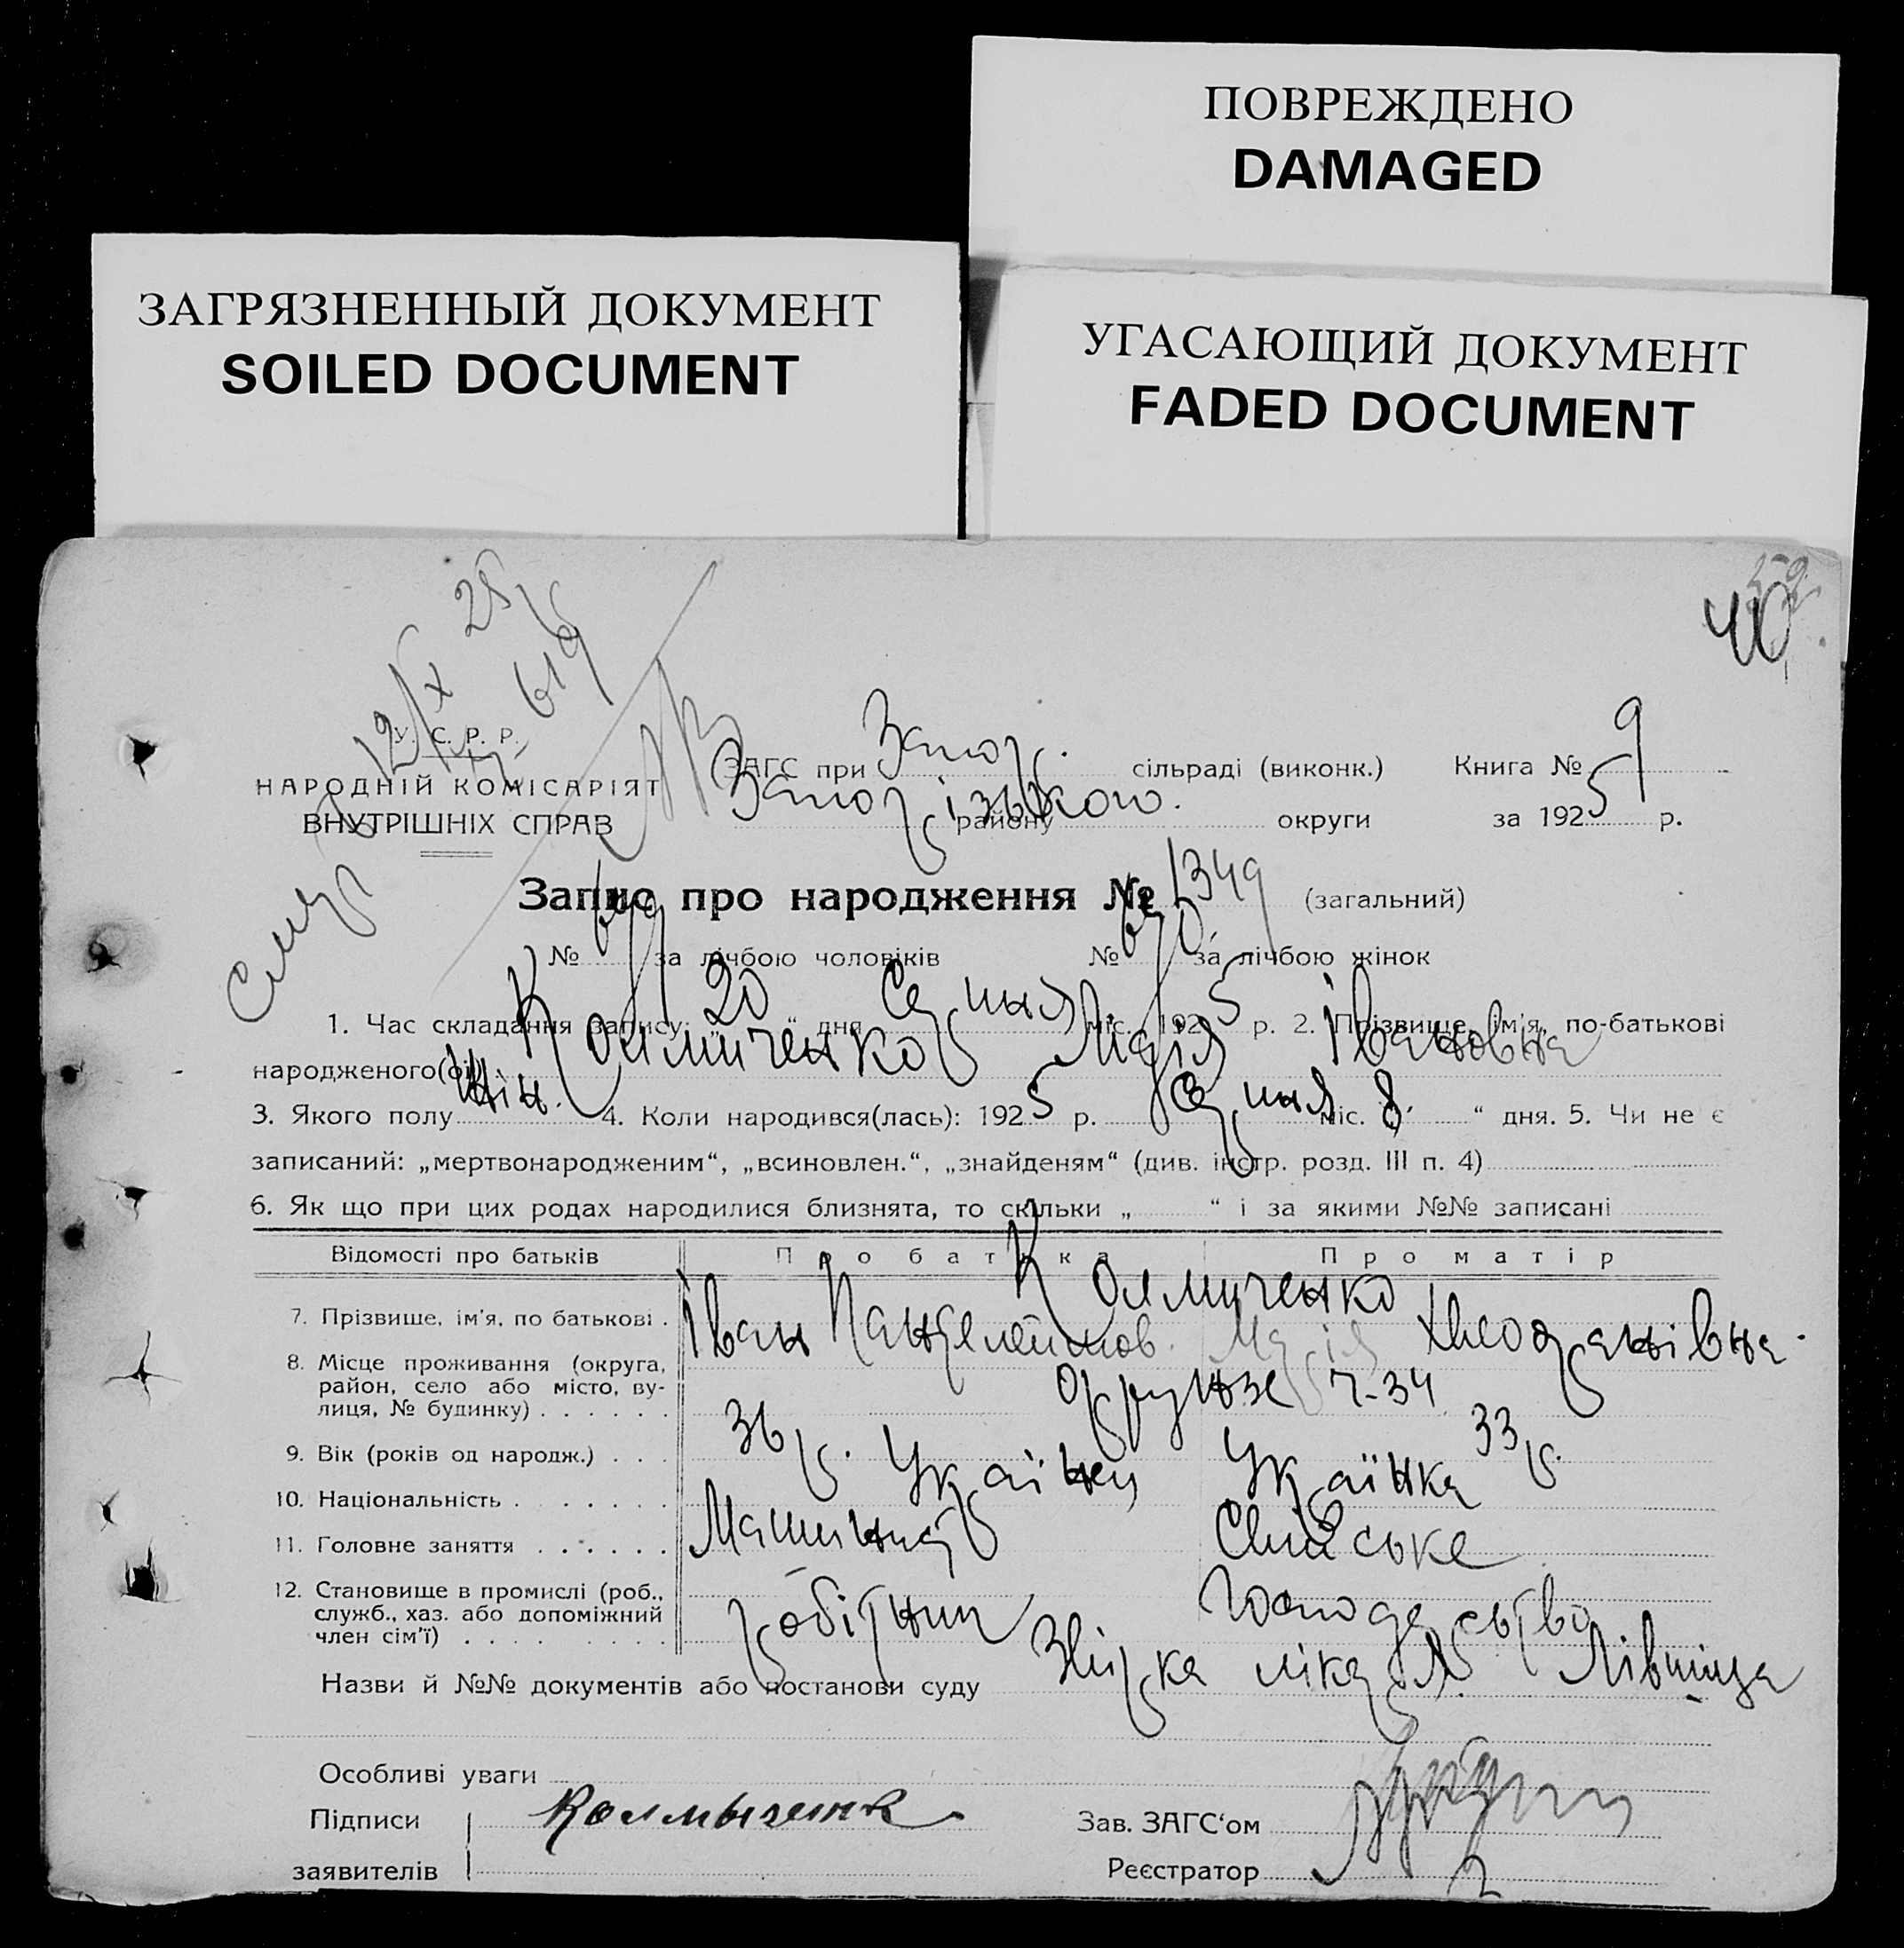 ПОВРЕЖДЕНО
DAMAGED
ЗАГРЯЗНЕННЫЙ ДОКУМЕНТ
SOILED DOCUMENT
УГАСАЮЩИЙ ДОКУМЕНТ
FADED DOCUMENT
40
12/X 25
619
У. С. Р. Р.
НАРОДНІЙ КОМІСАРІЯТ
ВНУТРІШНІХ СПРАВ
ЗАГС при Запор. сільраді (виконк.) Книга № 9
Запорізького. району округи за 1925 р.
Запис про народження № 1349 (загальний)
№ за лічбою чоловіків № 670 за лічбою жінок
1. Час складання запису: „20“ дня Серпня міс. 1925 р. 2. Прізвище, ім'я, по-батькові
народженого(ої) Колмиченко Марія Івановна
3. Якого полу жін. 4. Коли народився(лась): 1925 р. Серпня міс. 8. “ дня. 5. Чи не є
записаний: „мертвонародженим“, „всиновлен.“, „знайденям“ (див. інстр. розд. III п. 4)
6. Як що при цих родах народилися близнята, то скільки „ “ і за якими №№ записані
Відомості про батьків Про батька Про матір
Колмиченко
7. Прізвище, ім'я, по батькові . Іван Пантелеймов. Марія
8. Місце проживання (округа, район, село або місто, вулиця, № будинку) . . . . . . Фрунзе 34
9. Вік (років од народж.) . . . 36 р. 33 р.
10. Національність . . . . . . . . Українець Українка
11. Головне заняття . . . . . . Машиніст Хатнє
12. Становище в промислі (роб., служб., хаз. або допоміжний член сім'ї) . . . . . . . . робітник господарство
Назви й №№ документів або постанови суду лікаря Лівшица
Особливі уваги
Підписи Колмыченк Зав. ЗАГС'ом
заявителів Реєстратор